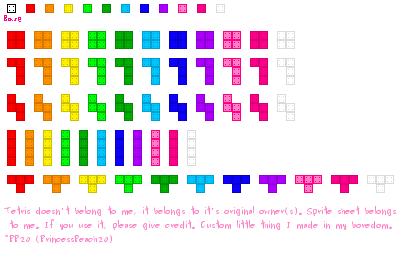 Base
Tetris doesn't belong to me, it belongs to it's original owner(s). Sprite sheet belongs
to me. If you use it, please give credit. Custom little thing I made in my boredom.
~PB20 (PrincessPeach20)